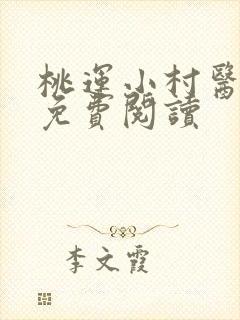 桃運小村醫
免費閱讀
李文霞